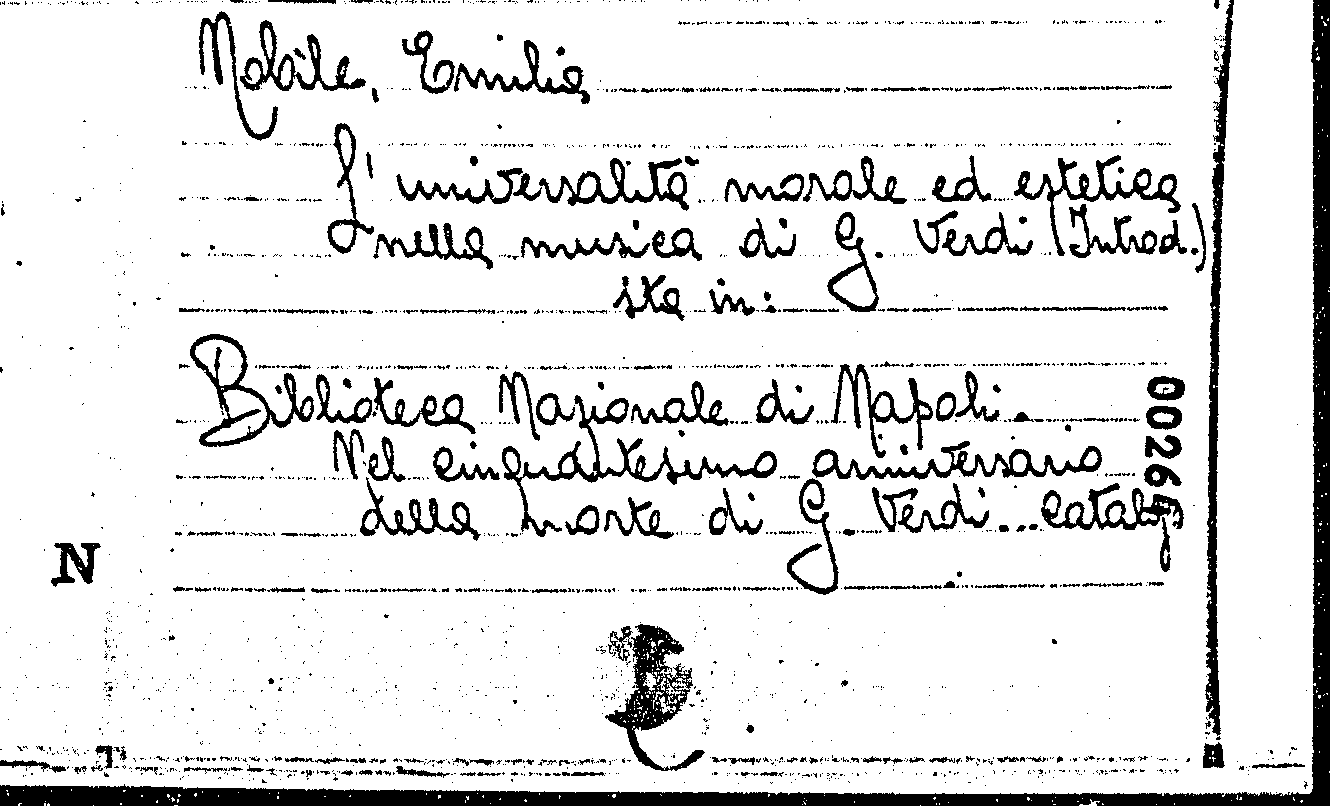 Nobile, Emilia
L'universalità morale ed estetica
nella musica di G. Verdi (Introd.)
sta in:
Biblioteca Nazionale di Napoli.
Nel cinquantesimo anniversario
della morte di G. Verdi...catalg
N